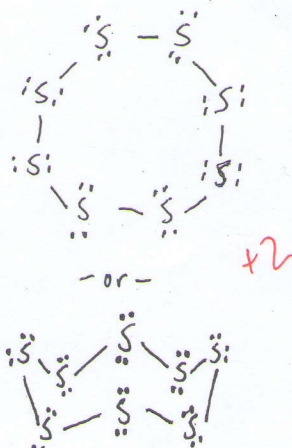 S - S
S S
S S
S - S
- or -
+2
S
S S
S S
S
S S